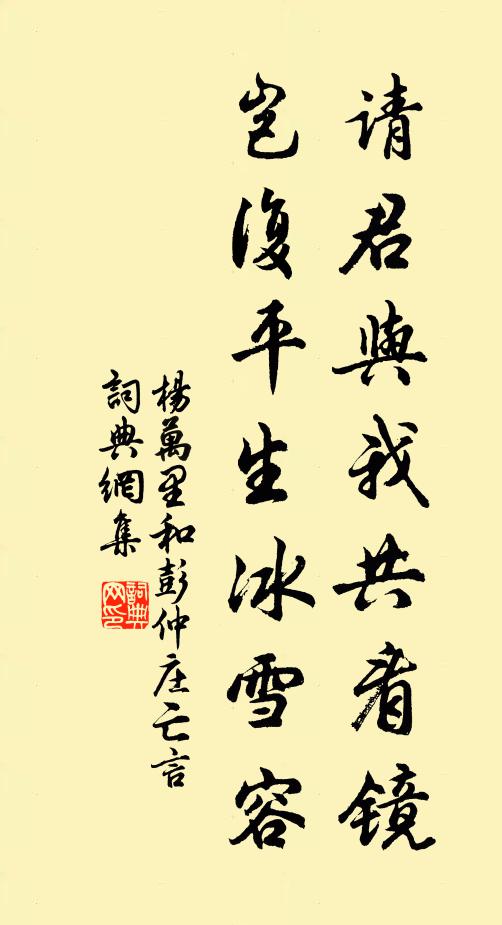 请君與我共看镜
岂復平生冰雪容
楊萬里和彭仲庄亡言
詞典網集
詞典網印